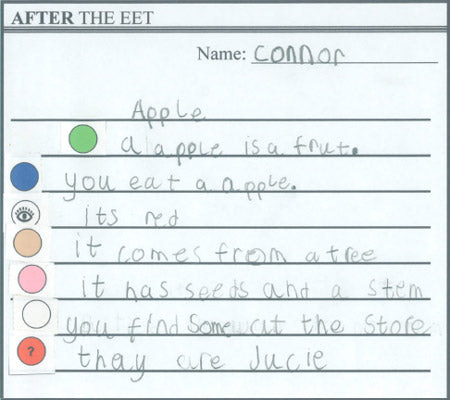 AFTER THE EET
Name: Connor
Apple
a apple is a frut.
you eat a apple.
its red
it comes from a tree
it has seeds and a stem
you find Some at the Store
?
thay are Jucie